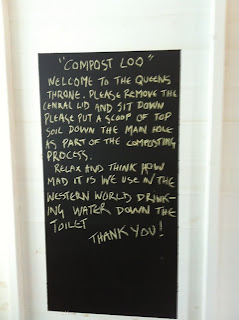 "COMPOST LOO"
WELCOME TO THE QUEENS
THRONE. PLEASE REMOVE THE
CENRAL LID AND SIT DOWN
PLEASE PUT A SCOOP OF TOP
SOIL DOWN THE MAIN HOLE
AS PART OF THE COMPOSTING
PROCESS.
RELAX AND THINK HOW
MAD IT IS WE USE IN THE
WESTERN WORLD DRINK-
ING WATER DOWN THE
TOILET
THANK YOU!